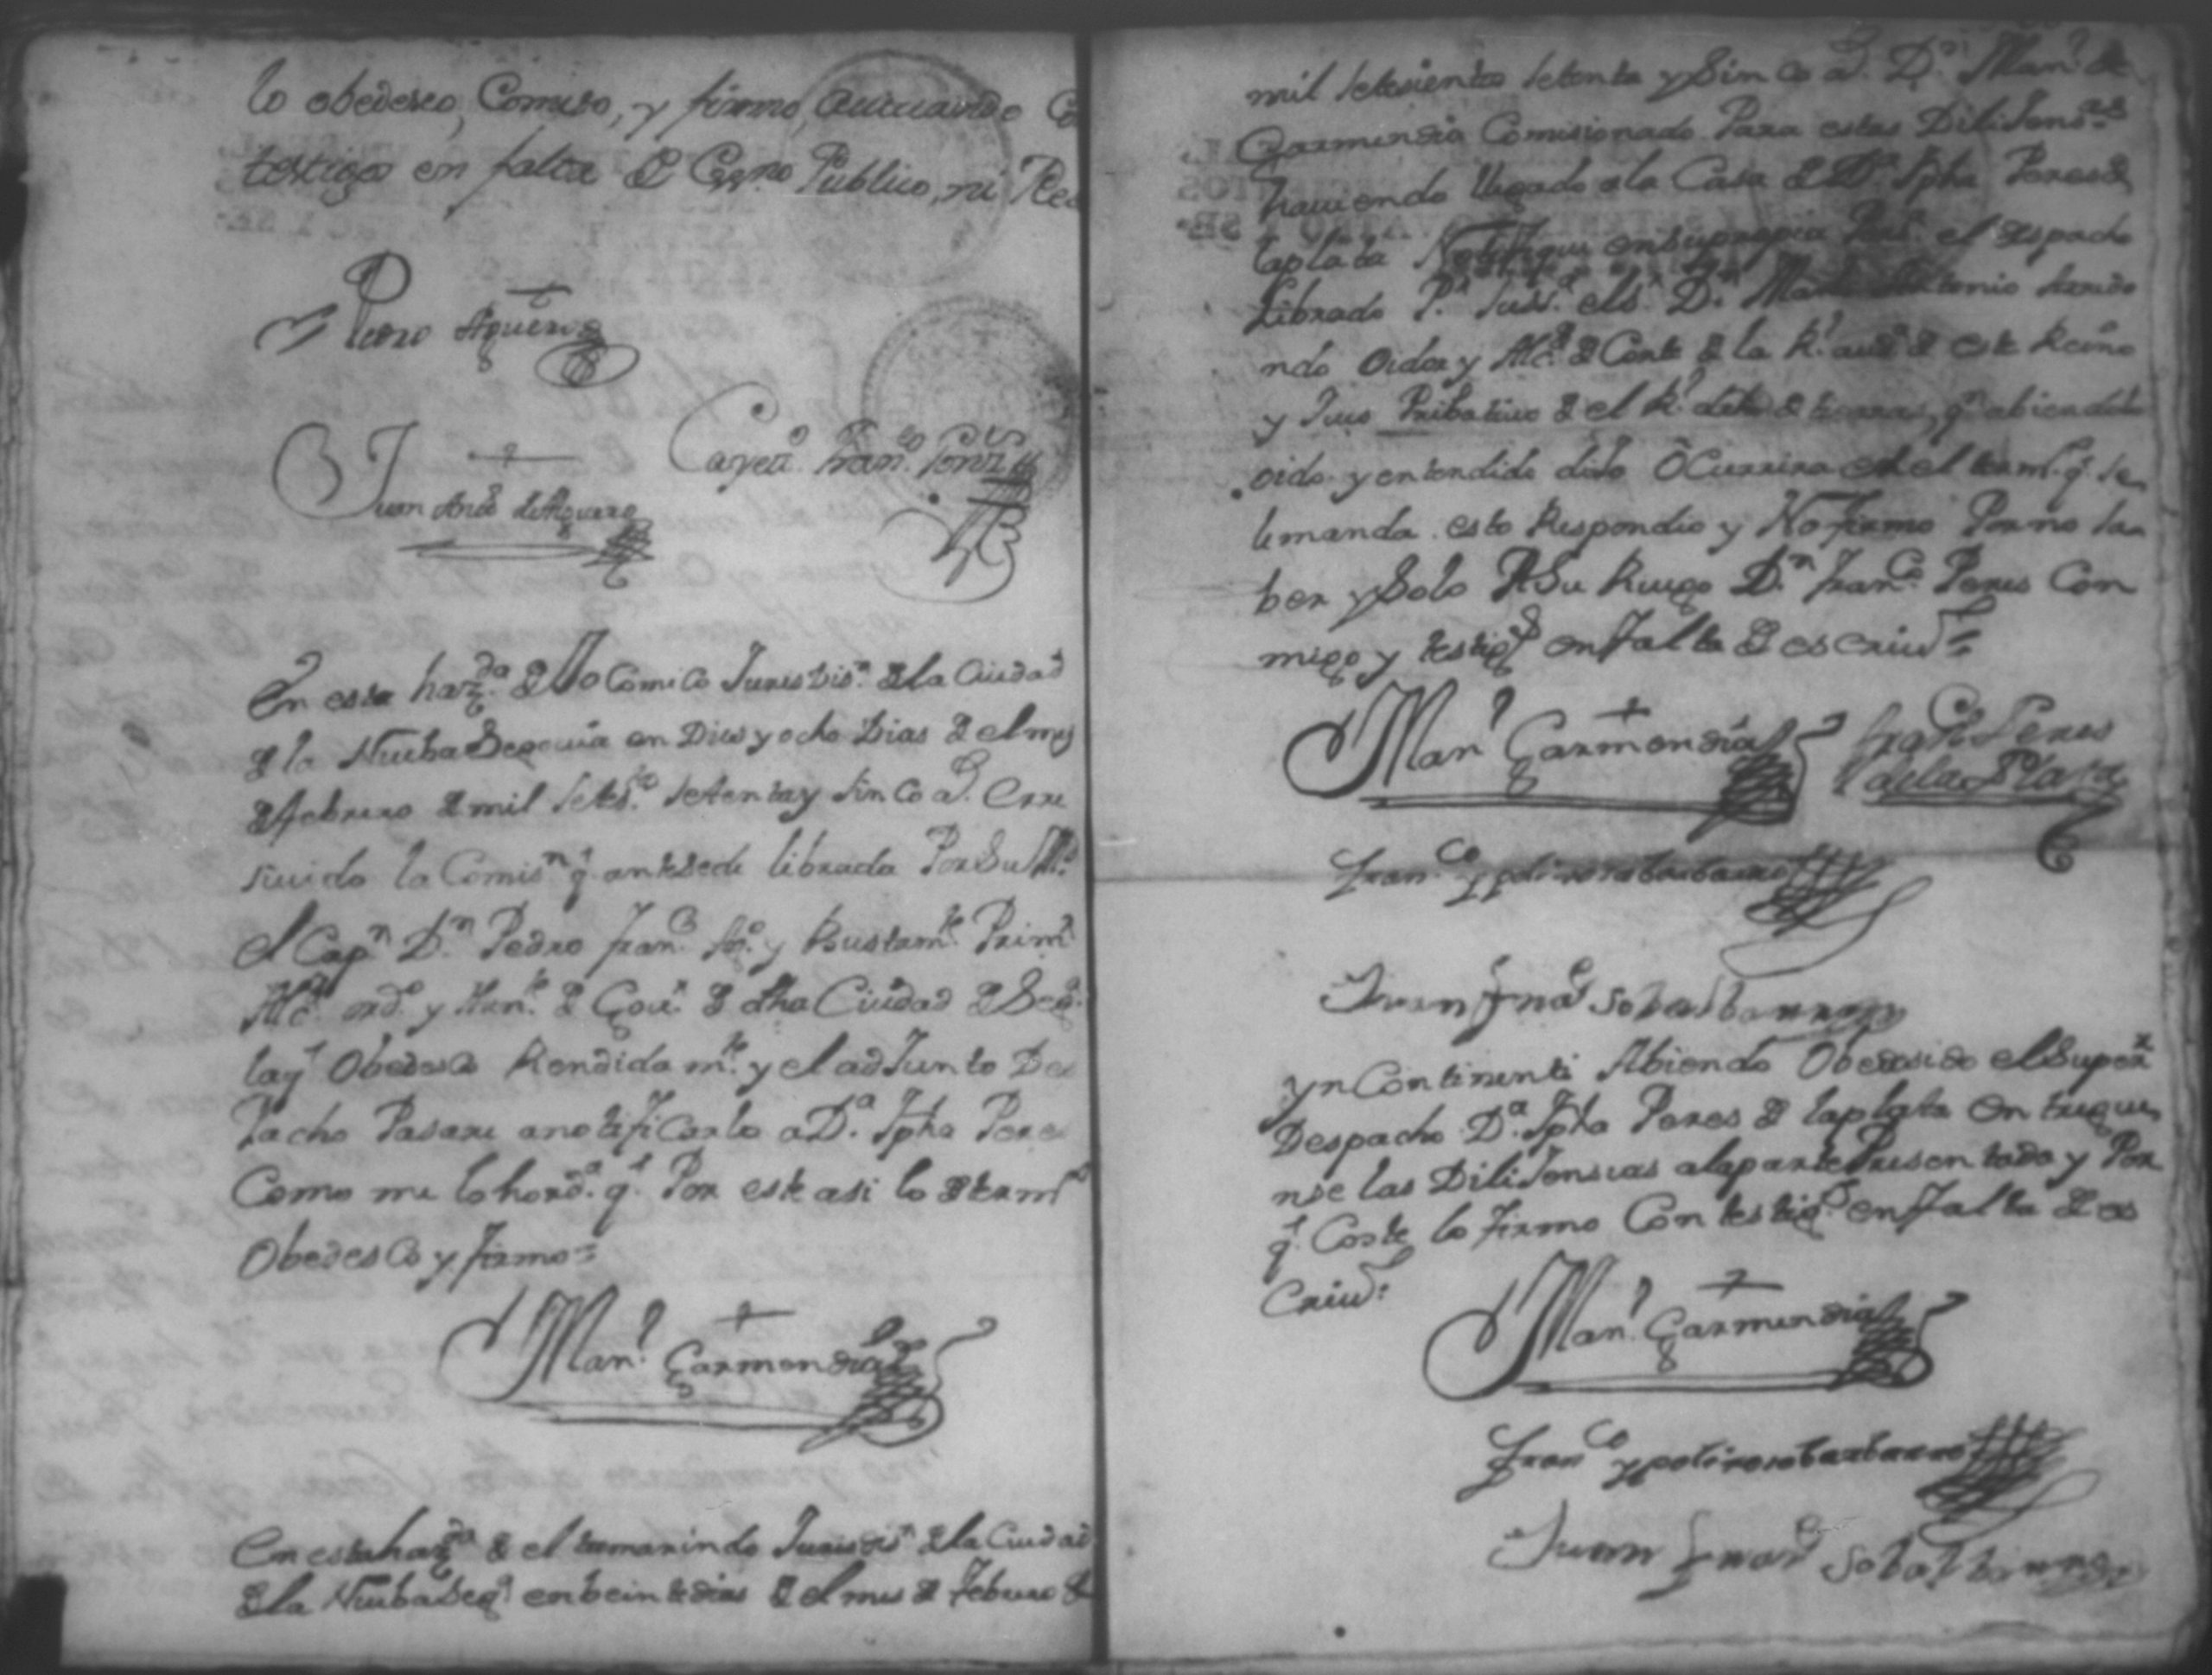 lo obedesco, Cometo, y firmo, actuando Co
testigos en falta de Essno Publico, ni Rea
Pedro Aguero
Juan Anto de Aguero
Cayeto Frano
En esta hazda de Yo Comico Jurisdisn de la Ciudad
de la Nueba Segovia en Dies y ocho Dias de el mes
de febrero de mil Setesto Setenta y Sinco as. E rre
sivido la Comisn q antesede librada Por Su Md
el Capn Dn Pedro Franco y Bustamte Primo
Alce ordo y Thente de Gov de dha Ciudad de Sega
la q Obedesco Rendida mte y el adJunto Des
Pacho Pasare a notifiCarlo a Da Jpha Peres
Como me lo horda q Por este asi lo determo
Obedesco y firmo=
Manl Garmendia
En esta hazda de el tamarindo Jurisdisn de la Ciudad
de la Nueba Sega en beinte dias de el mes de Febrero de
mil Setesientos Setenta y Sinco as Dn Manl de
Garmendia Comisionado Para estas DiliJensas
haviendo llegado a la Casa de Da Jpha Peres de
la plata Notifique en Su propia Persa el despacho
Librado Pr el Sr Dn Antonio Arredo
ndo Oidor y Alce de Corte de la Rl auda de este Reino
y Jues Pribatibo de el Rl dro de tierras, q abiendolo
oido y entendido dijo OCurrira en el termo q se
le manda esto Respondio y No firmo Por no sa
ber y Solo A Su Ruego Dn Franco Peres Con
migo y testigs en falta de escrivo=
Manl Garmendia
Franco Peres
de la Plata
Franco ypolito
Juan
yn Continenti Abiendo Obedesido el Superr
Despacho Da Jpha Peres de la plata Entregue
nse las DiliJensias a la parte Presentada y Por
q Coste lo firmo Con testigs en falta de es
crivo=
Manl Garmendia
Franco ypolito
Juan